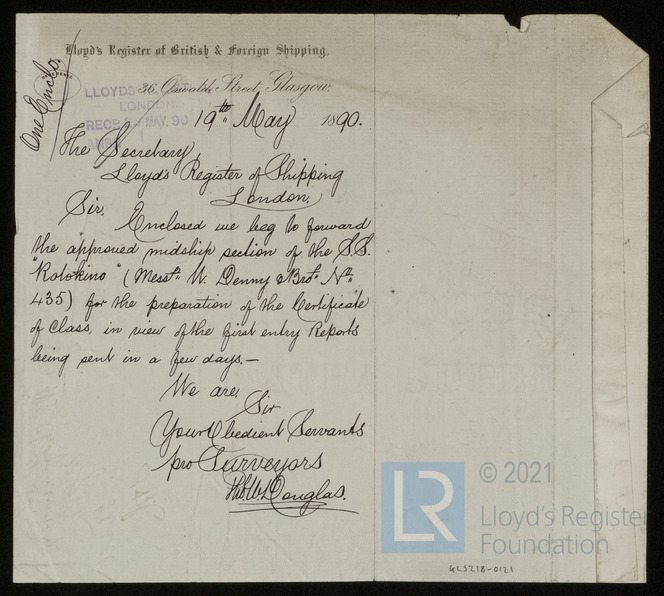 Lloyd's Register of British & Foreign Shipping,
36, Oswald Street, Glasgow.
One Enclo.
LLOYDS
LONDON.
RECD MAY. 90
19th May 1890.
The Secretary,
Lloyd's Register of Shipping
London.
Sir.
Enclosed we beg to forward
the approved midship section of the S.S.
"Rotokino" (Messrs W. Denny & Bros No
435) for the preparation of the Certificate
of Class, in view of the first entry Reports
being sent in a few days.—
We are,
Sir
Your Obedient Servants
pro Surveyors
Douglas.
LR
© 2021
Lloyd's Register
Foundation
GLS218-0121